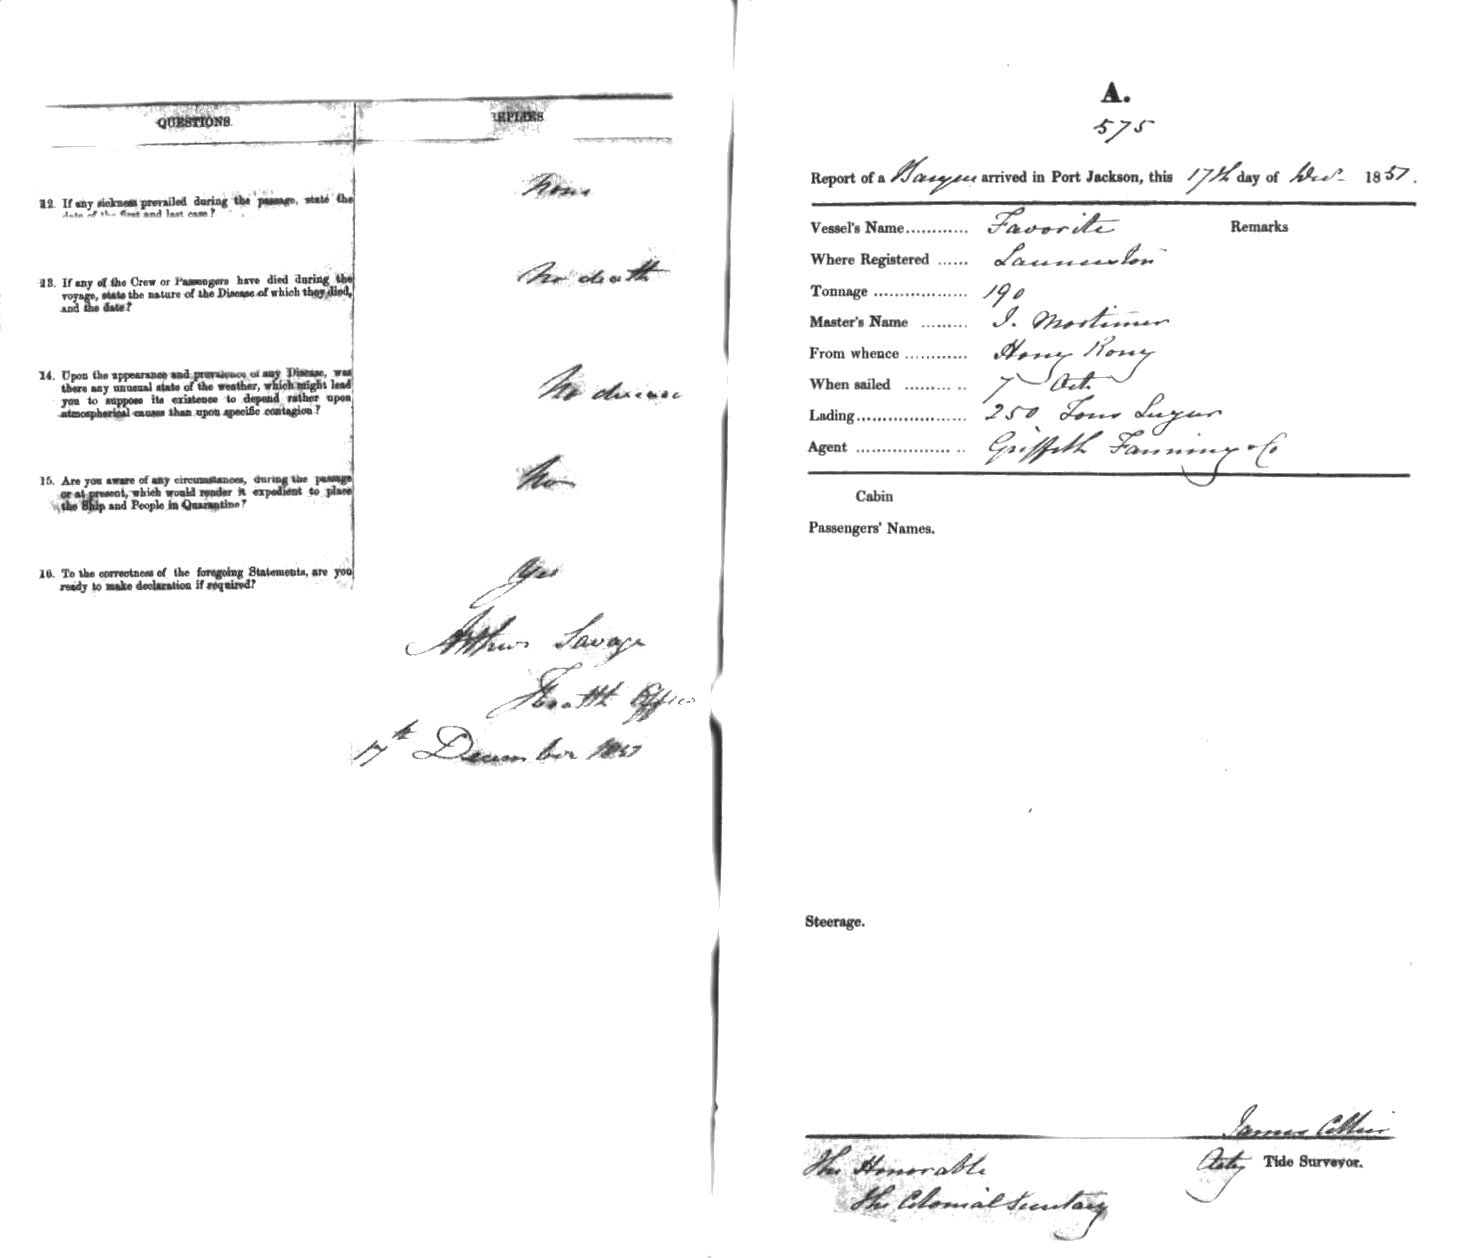 QUESTIONS.
REPLIES
12. If any sickness prevailed during the passage, state the
date of the first and last case?
None
13. If any of the Crew or Passengers have died during the
voyage, state the nature of the Disease of which they died,
and the date?
No death
14. Upon the appearance and prevalence of any Disease, was
there any unusual state of the weather, which might lead
you to suppose its existence to depend rather upon
atmospherical causes than upon specific contagion?
No disease
15. Are you aware of any circumstances, during the passage
or at present, which would render it expedient to place
the Ship and People in Quarantine?
No
16. To the correctness of the foregoing Statements, are you
ready to make declaration if required?
Yes
Arthur Savage
Health Officer
17th December 1851
A.
575
Report of a Barque arrived in Port Jackson, this 17th day of Decr 1851.
Vessel's Name............ Favorite
Remarks
Where Registered ...... Launceston
Tonnage .................. 190
Master's Name ......... J. Mortimer
From whence ............ Hong Kong
When sailed ......... .. 7 Oct
Lading..................... 250 Tons Sugar
Agent .................. .. Griffith Fanning & Co
Cabin
Passengers' Names.
Steerage.
James
Actg Tide Surveyor.
The Honorable
The Colonial Secretary